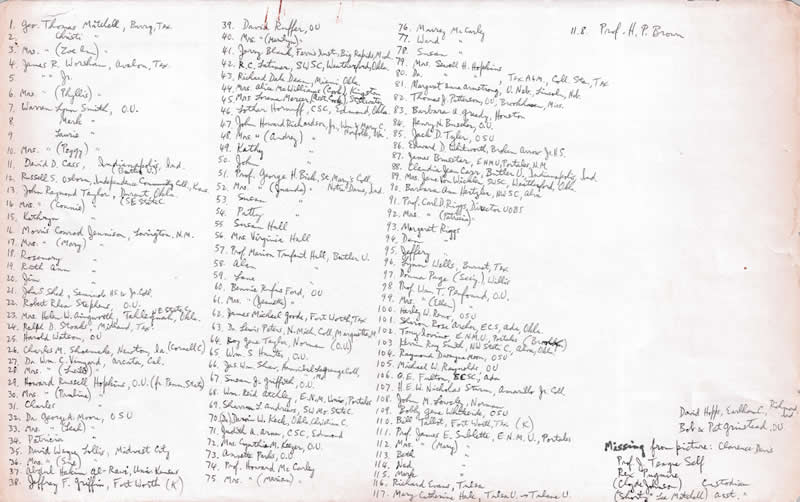 1. Geo. Thomas Mitchell, Burg, Tex.
2. Christi "
3. Mrs. " (Zoe Ann) "
4. James R. Worsham, Avalon, Tex.
5. " " Jr. "
6. Mrs. " (Phyllis) "
7. Warren Lynn Smith, O.U.
8. Mark "
9. Laurie "
10. Mrs. " (Peggy) "
11. David D. Cass, Indianapolis, Ind. (Butler U.)
12. Russell S. Osborn, Independence Community Coll, Kans
13. John Raymond Taylor, (SE State C.
14. Mrs. " (Connie) "
15. Kathryn "
16. Morris Conrad Jennison, Lovington, N.M.
17. Mrs. " (Mary) "
18. Rosemary "
19. Ruth Ann "
20. Jim "
21. John S. Seminole HS & Jr. Coll.
22. Robert Rhea Stephens, O.U.
23. Mrs. Helen W. Tahlequah, Okla. N.E. State C.
24. Ralph D. Midland, Tex.
25. Harold Watson, OU
26. Charles M. Shoemake, Newton, Ia. (Cornell C)
27. Dr. Wm. C. Vinyard, Arcata, Cal.
28. Mrs. " "
29. Howard Russell Hopkins, O.U. (fr. Penn. State)
30. Mrs. " (Pauline) "
31. Charles "
32. Dr. George A. Moore, OSU
33. Mrs. " (Leal) "
34. Patricia "
35. David Wayne Lollis, Midwest City
36. Mrs. " (Sue) "
37. Abdul Hakim Al-Rawi, Univ Kansas
38. Jeffrey F. Griffin, Fort Worth (K)
39. David Ruffer, OU
40. Mrs. " (Marilyn) "
41. Jerry Blank, Ferris Inst, Big Rapids Mich.
42. R.C. Latimer, SWSC, Weatherford, Okla.
43. Richard Dale Dean, Miami, Okla.
44. Mrs. Alice McWilliams (Cook) Kingston
45. Mrs Lorene Mercer (Asst. Cook)
46. Lothar Hornuff, CSC, Edmond, Okla.
47. John Howard Richardson, Jr., Wm. & Mary C. Norfolk, Va.
48. Mrs. " (Audrey) "
49. Kathy "
50. John "
51. Prof. George H. Bick, St. Mary's Coll.
52. Mrs. " (Juanda) " Notre Dame, Ind.
53. Susan "
54. Patty "
55. Susan Hall
56. Mrs Virginia Hall
57. Prof. Marion Trufant Hall, Butler U.
58. Alan "
59. Lane "
60. Bennie Rufus Ford, OU
61. Mrs. " (Jeanette) "
62. James Michael Goode, Fort Worth, Tex.
63. Dr. Lewis Peters, N. Mich. Coll, Marquette, M
64. Roy Gene Taylor, Norman (O.U.)
65. Wm. S. Hunter, O.U.
66. Jas. Wm. Shaw, Hannibal LaGrange Coll, Mo.
67. Susan J. Griffith, O.U.
68. Wm. Reid Atchley, E.N.M. Univ, Portales
69. Sharron L. Andrews, SW Mo. State C.
70. Darvin W. Keck, Okla. Christian C.
71. Judith A. Arau, CSC, Edmond
72. Mrs. Cynthia M. Keeper, O.U.
73. Annette Parks, O.U.
74. Prof. Howard McCarley
75. Mrs. " (Marian) "
76. Maurey McCarley
77. Ward "
78. Susan "
79. Mrs. Sewell H. Hopkins
80. Dr. " " , Tex A&M, Coll. Sta, Tex
81. Margaret Anne Armstrong, U. Neb, Lincoln, Neb.
82. Thomas J. Peterson, OU, Brookhaven, Miss.
83. Barbara A. Grady, Houston
84. Henry N. Bueler, O.U.
85. Jack D. Tyler, OSU
86. Edward D. Broken Arrow Jr. H.S.
87. James Braziter, ENMU, Portales, N.M.
88. Claudia Jean Carr, Butler U., Indianapolis, Ind
89. Mrs. Jane Von Wicklin, SWSC, Weatherford, Okla
90. Barbara Ann Hertzler, NWSC, Alva
91. Prof. Carl D. Riggs, Director UOBS
92. Mrs. " (Patricia) "
93. Margaret Riggs
94. Dan "
95. Jeffery "
96. Lynna Wells, Burnet, Tex
97. Donna Page (Secy.), Willis
98. Prof. Wm. T. Penfound, O.U.
99. Mrs. " (Ellen) "
100. Harley W. Reno, OSU
101. Sharon Rose Archer, ECS, Ada, Okla.
102. Tony Bovino, E.N.M.U., Portales (Brooklyn)
103. Kevin Ray Smith, NW State C., Alva, Okla.
104. Raymond Dwayne Moon, OSU
105. Michael W. Reynolds, OU
106. O.E. Fulton, ECSC, Ada
107. H.E.W. Nicholas Sturm, Amarillo Jr. Coll
108. John M. Lovely, Norman
109. Bobby Gene Whiteside, OSU
110. Bill Talbot, Fort Worth, Tex (K)
111. Prof. James E. Sublette, E.N.M.U., Portales
112. Mrs. " (Mary) "
113. Beth "
114. Ned "
115. Mark "
116. Richard Evans, Tulsa
117. Mary Catherine Hale, Tulsa U. → Tulane U.
118. Prof. H.P. Brown
David Hoffs, Earlham C., Richmond Ind
Bob & Pat Grinstead, OU
Missing from picture: Clarence Davis
Prof. J. Teague Self
Rex
(Clyde Johnson) Custodian
(Shorty) Lee Mitchell) asst. "